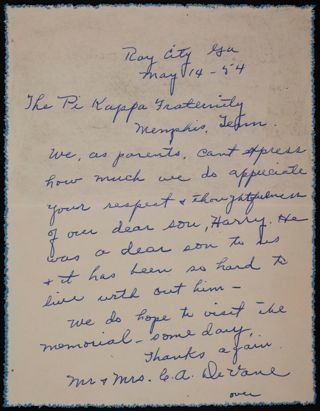 Ray City Ga
May 14 - 54
The Pi Kappa Fraternity
Memphis, Tenn.
We, as parents, cant express
how much we do appreciate
your respect & thoughtfulness
of our dear son, Harry. He
was a dear son to us
& it has been so hard to
live with out him -
We do hope to visit the
memorial - some day,
Thanks again.
Mr & Mrs. C. A. DeVane
over